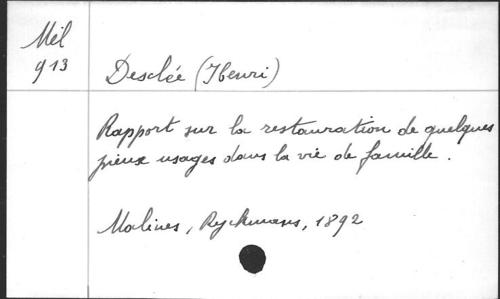 Mél
913
Desclée (Henri)
Rapport sur la restauration de quelques
pieux usages dans la vie de famille.
Malines, Ryckmans, 1892